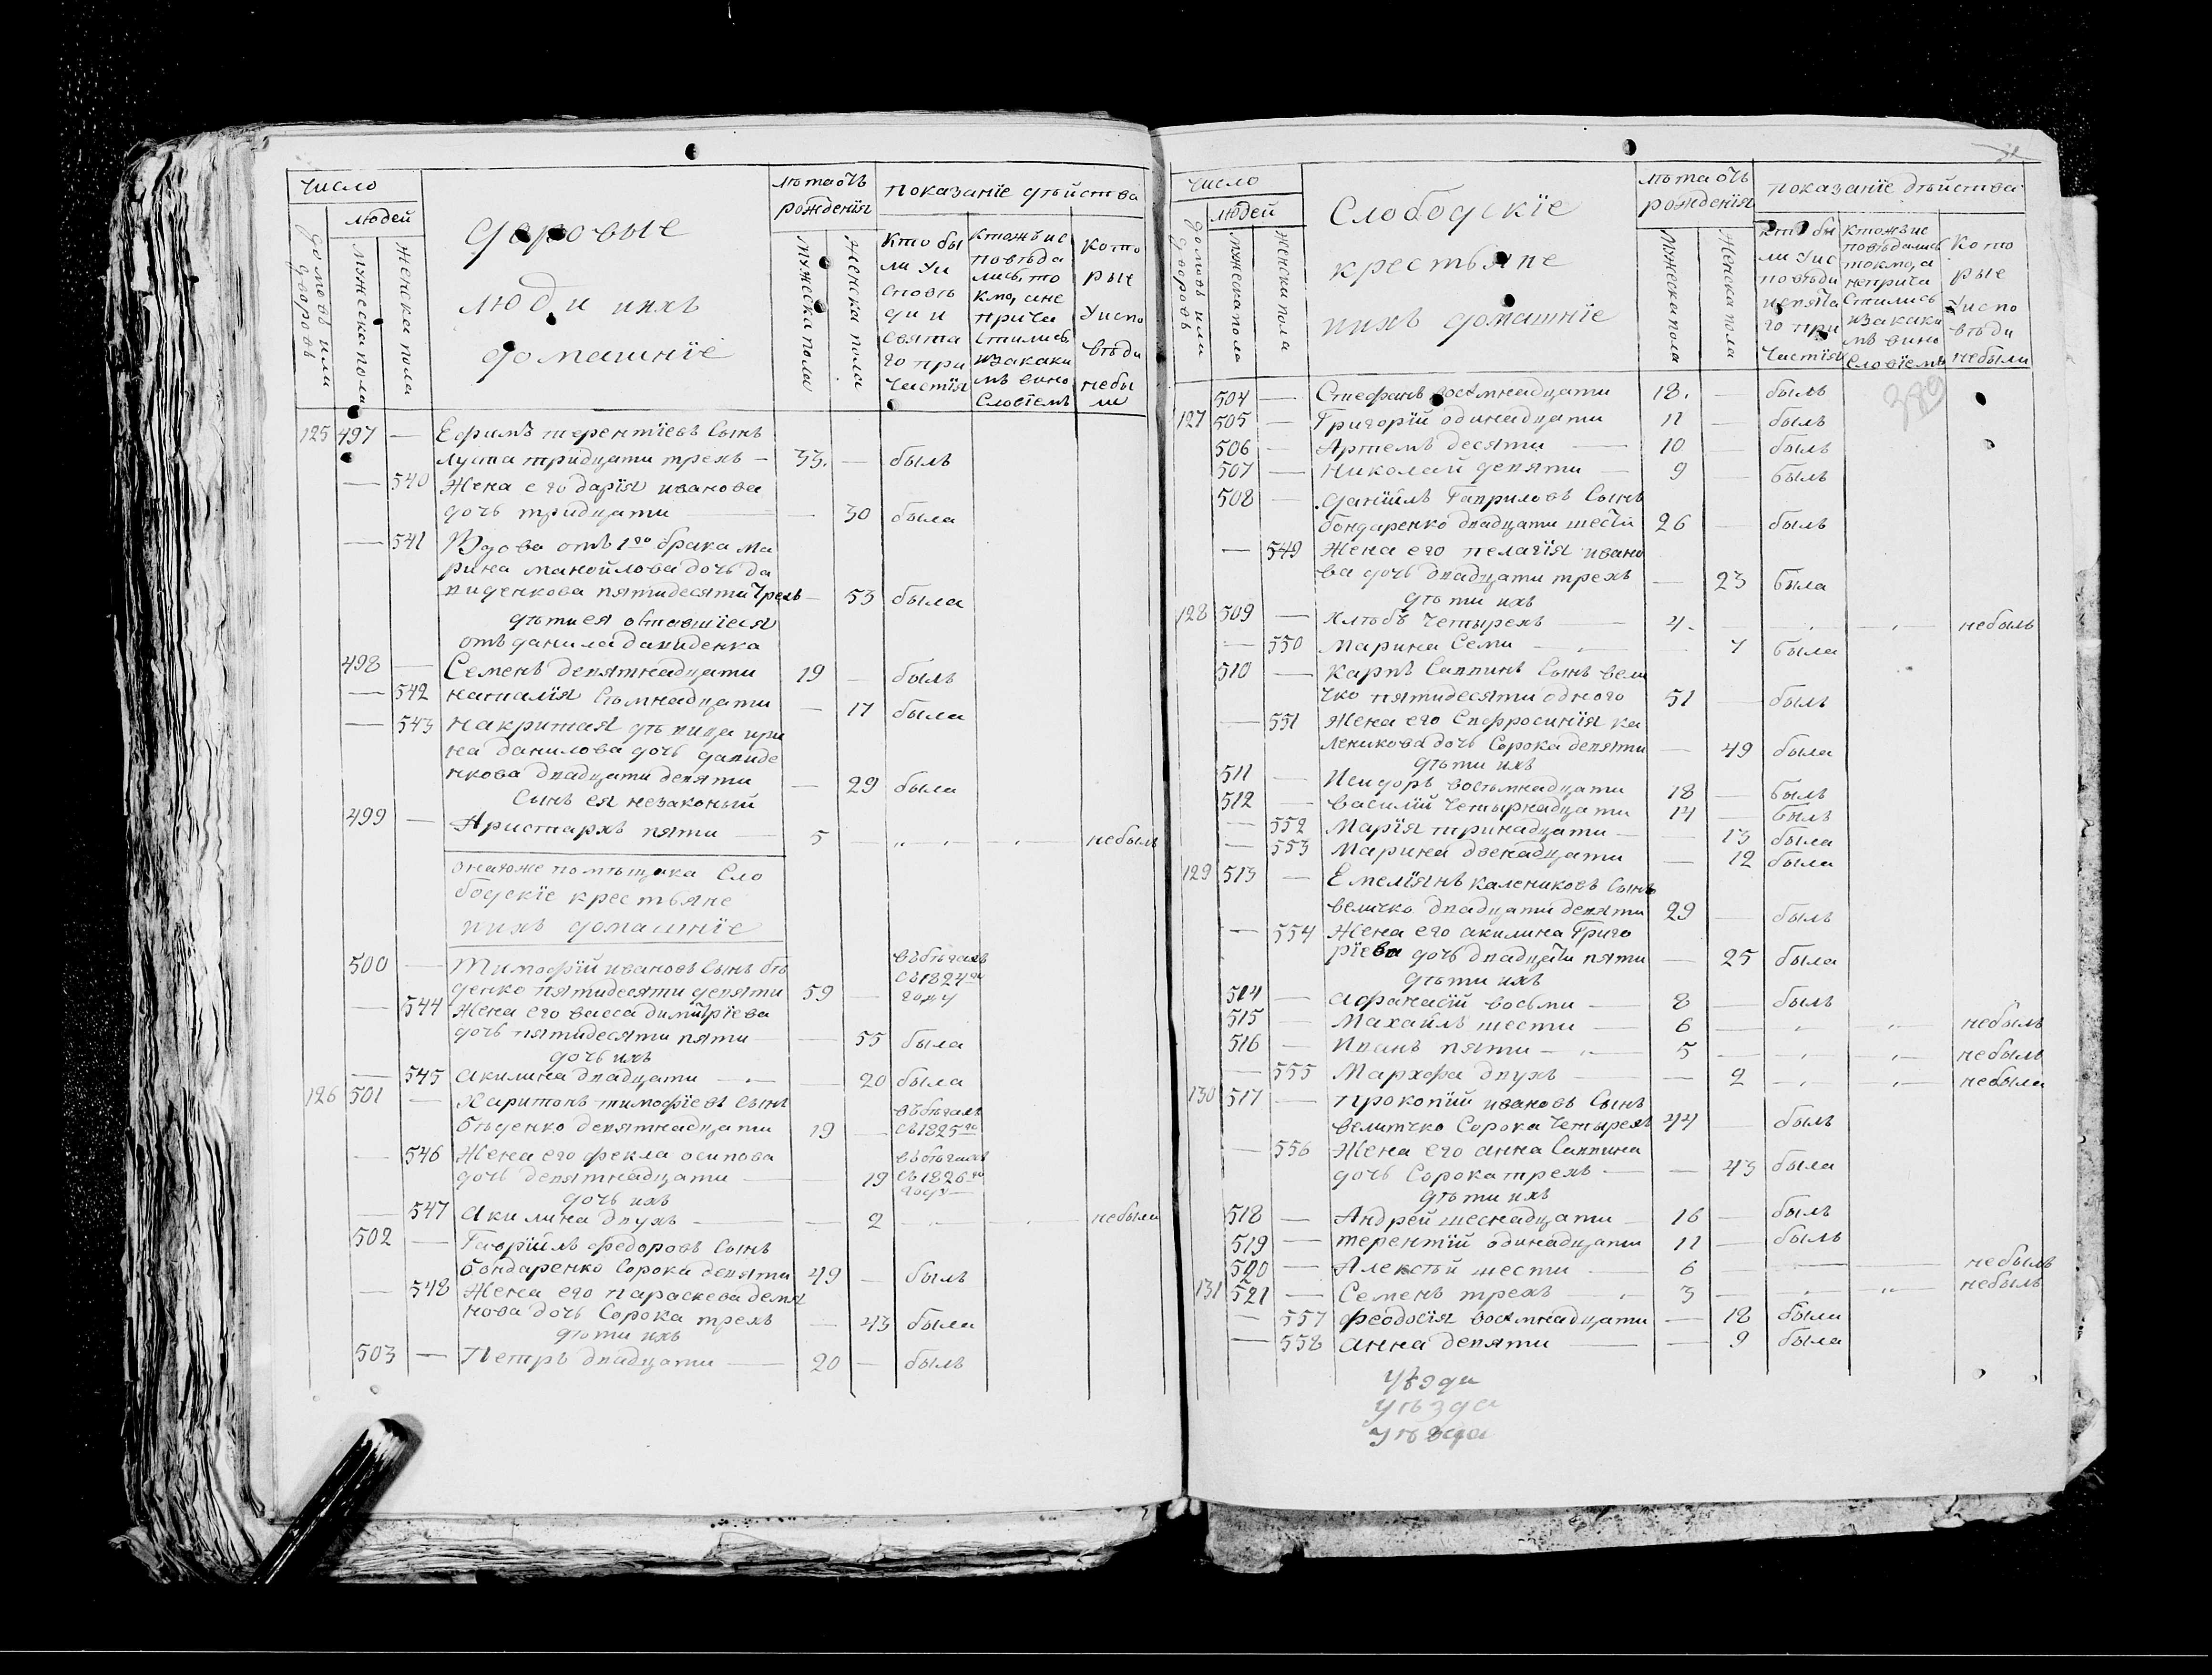 число
людей
домовъ или дворовъ
мужеска пола
женска пола
дворовые
люди иихъ
домашнїе
лѣта отъ
рожденїя
мужеска пола
женска пола
показанїе дѣйства
кто бы
ли уи
сповѣ
ди и
свята
го при
частїя
ктожъ ис
повѣда
лись, то
кмо, ане
прича
стились
изакаки
мъ вино
словїемъ
кото
рые
уиспо
вѣди
небы
ли
125 497 — Ефимъ терентїевъ сынъ
луста тридцати трехъ — 33. — былъ
— 540 Жена его дарїя иванова
дочь тридцати — 30 была
— 541 Вдова отъ 1го брака ма
рина манойлова дочь да
виденкова пятидесяти трехъ — 53 была
дѣти ея оставшїеся
отъ данила давиденка
498 — Семенъ девятнадцати 19 — былъ
— 542 наталїя сѣмнадцати — 17 была
— 543 накритая дѣвица ири
на данилова дочь давиде
нкова двадцати девяти — 29 была
сынъ ея незаконый
499 — Аристархъ пяти — 5 — „ „ небылъ
онагоже помѣщика сло
бодскїе крестьяне
иихъ домашнїе
500 — Тимофїй ивановъ сынъ бѣ
денко пятидесяти девяти 59 —
въбѣгахъ
съ1824го
году
— 544 Жена его васса димитрїева
дочь пятидесяти пяти — 55 была
дочь ихъ
— 545 акилина двадцати — 20 была
126 501 — Харитонъ тимофїевъ сынъ
бѣденко девятнадцати 19 —
въбѣгахъ
съ1825го
— 546 Жена его фекла осипова
дочь девятнадцати — 19
въбѣгахъ
съ1826го
году —
дочь ихъ
— 547 акилина двухъ — — 2 „ „ небыла
502 — Гаврїилъ федоровъ сынъ
бондаренко сорока девяти 49 — былъ
— 548 Жена его параскева демя
нова дочь сорока трехъ — 43 была
дѣти ихъ
503 — Петръ двадцати — 20 — былъ
число
людей
домовъ или дворовъ
мужеска пола
женска пола
Слободскїе
крестьяне
иихъ домашнїе
лѣта отъ
рожденїя
мужеска пола
женска пола
показанїе дѣйства
кто бы
ли уис
повѣди
исвята
го при
частїя
ктожъ ис
повѣдались
токмо, а
неприча
стились
изакаки
мъ вино
словїемъ
кото
рые
уиспо
вѣди
небыли
389
504 — Стефанъ восмнадцати 18. — былъ
127 505 — Григорїй одинадцати 11 — былъ
506 — Артемъ десяти — 10 — былъ
507 — Николай девяти — 9 былъ
508 — данїилъ Гавриловъ сынъ
бондаренко двадцати шести 26 былъ
— 549 Жена его пелагїя ивано
ва дочь двадцати трехъ — 23 была
дѣти ихъ
128 509 — Хлѣбъ четырехъ — 4. „ „ небылъ
— 550 Марина семи — 7 была
510 — Карпъ саввинъ сынъ вели
чко пятидесяти одного 51 былъ
— 551 Жена его Ефросинїя ка
леникова дочь сорока девяти — 49 была
дѣти ихъ
511 — Исидоръ восьмнадцати 18 — былъ
512 — василїй четырнадцати 14 — былъ
— 552 Марїя тринадцати — 13 была
— 553 Марина двенадцати — 12 была
129 513 — Емелїянъ калениковъ сынъ
величко двадцати девяти 29 былъ
— 554 Жена его акилина Григо
рїева дочь двадцати пяти — 25 была
дѣти ихъ
514 — афанасїй восьми — 8 — былъ
515 — Махайлъ шести — 6 — „ „ небылъ
516 — Иванъ пяти — 5 — „ „ небылъ
— 555 Мархфа двухъ — — 2 — „ „ небыла
130 517 — прокопїй ивановъ сынъ
величко сорока четырехъ 44 былъ
— 556 Жена его анна саввина
дочь сорока трехъ — — 43 была
дѣти ихъ
518 — Андрей шеснадцати — 16 — былъ
519 — терентїй одинадцати 11 — былъ
520 — Алексѣй шести — 6 — — — небылъ
131 521 — Семенъ трехъ — 3 — „ „ небылъ
— 557 феодосїя восмнадцати — 18 была
— 558 анна девяти — — 9 была
уѣзди
уѣзда
уѣзда